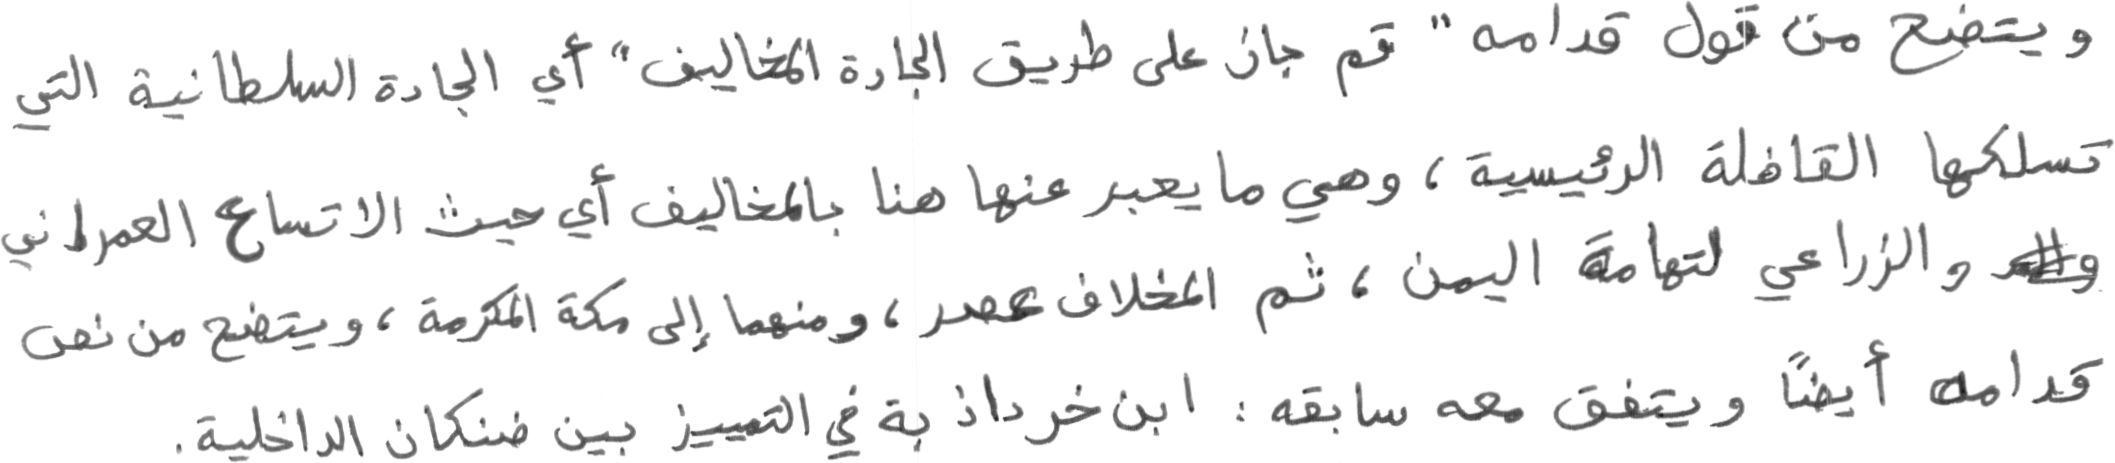 ويتضح من قول قدامه " قم جان على طريق الجادة المخاليف " أي الجادة السلطانية التي
تسلكها القافلة الرئيسية ، وهي ما يعبر عنها هنا بالمخاليف أي حيث الاتساع العمراني
والزراعي لتهامة اليمن ، ثم المخلاف عصر ، ومنهما إلى مكة المكرمة ، ويتضح من نص
قدامه أيضًا ويتفق معه سابقه : ابن خرداذبة في التمييز بين ضنكان الداخلية .